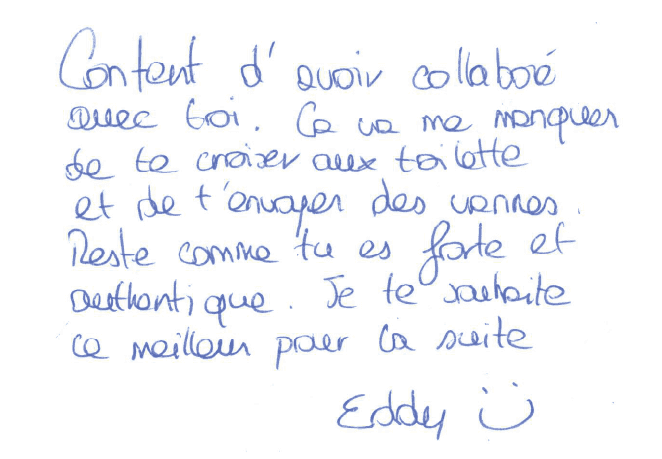 Content d'avoir collaboré
avec toi. Ca va me manquer
de te croiser aux toilette
et de t'envoyer des vannes.
Reste comme tu es forte et
authentique. Je te souhaite
le meilleur pour la suite
Eddy :)